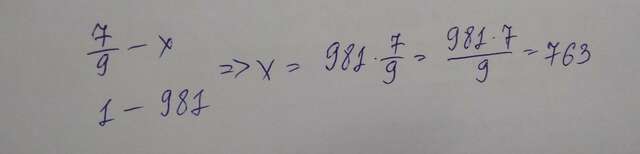 7/9 - x
1 - 981
=> x = 981 · 7/9 = 981 · 7 / 9 = 763